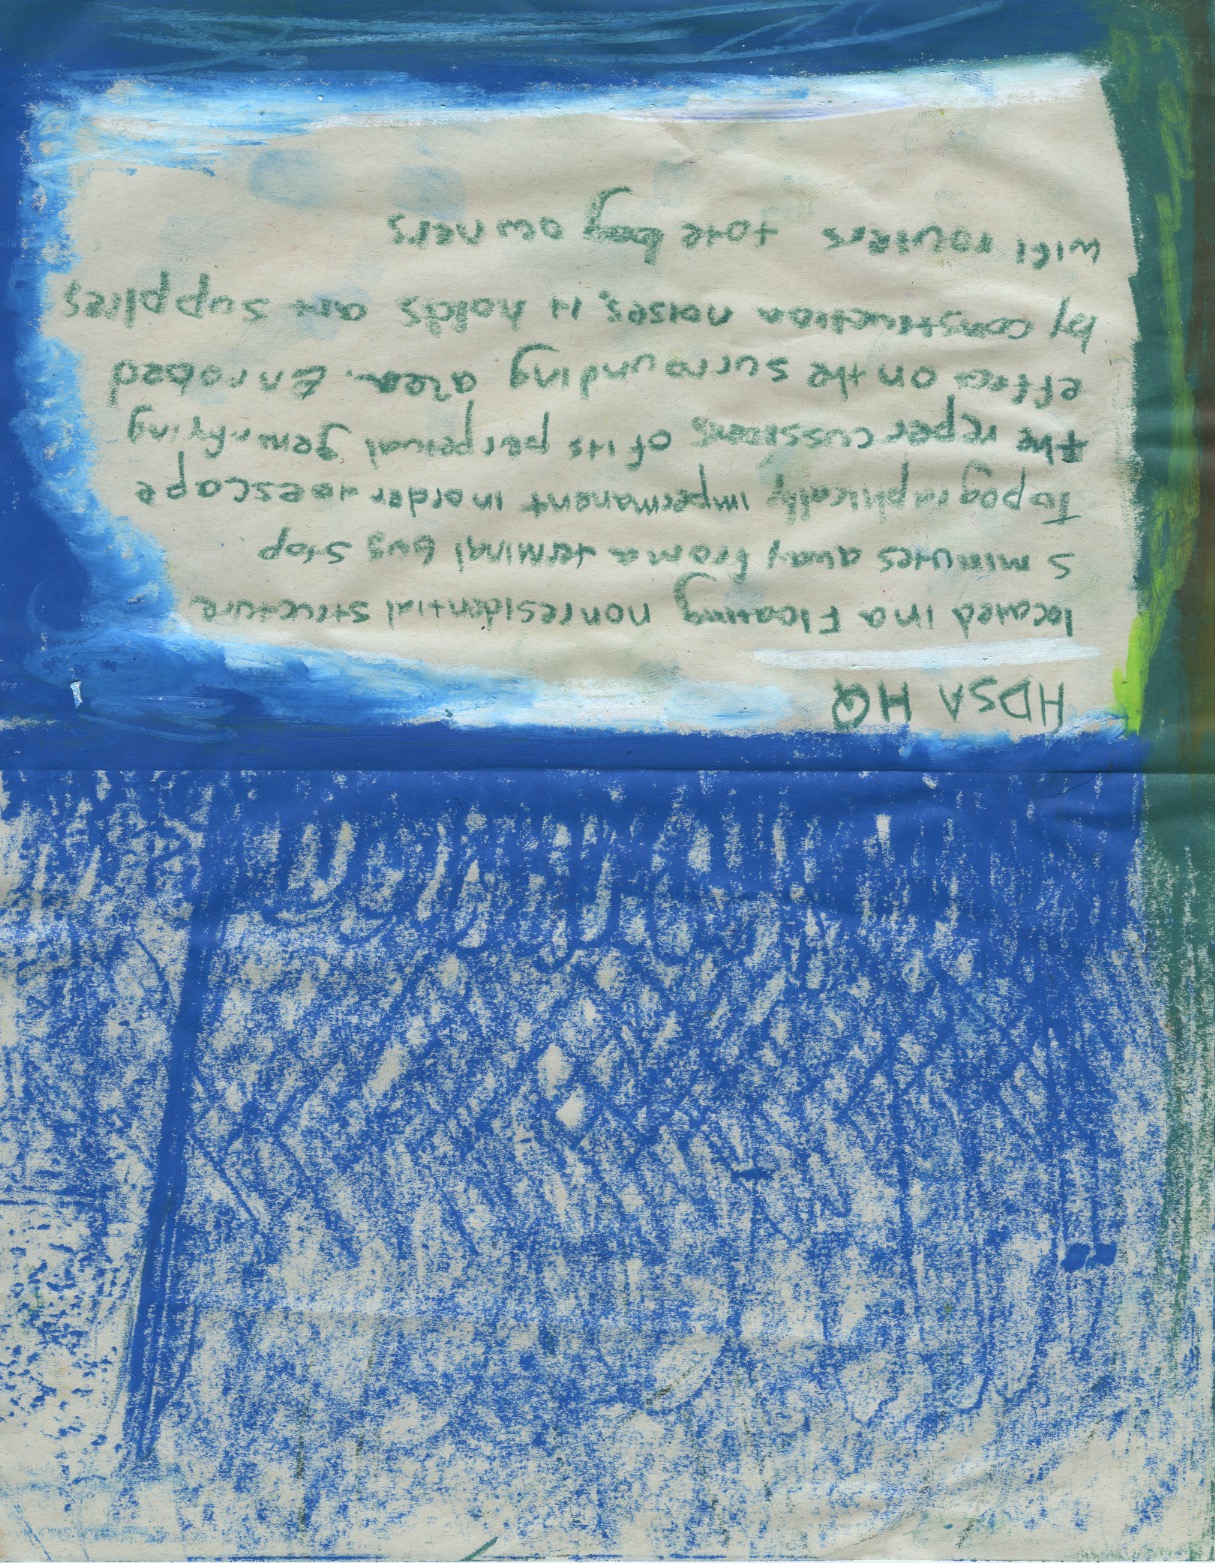 HDSA HQ
located in a Floating nonresidential structure
5 minutes away from a terminal bus stop
Topographically impermanent in order to escape
the repercussions of its perpetual gentrifying
effect on the surrounding area. Enrobed
by construction noises, it holds art supplies
wifi routers tote bag owners